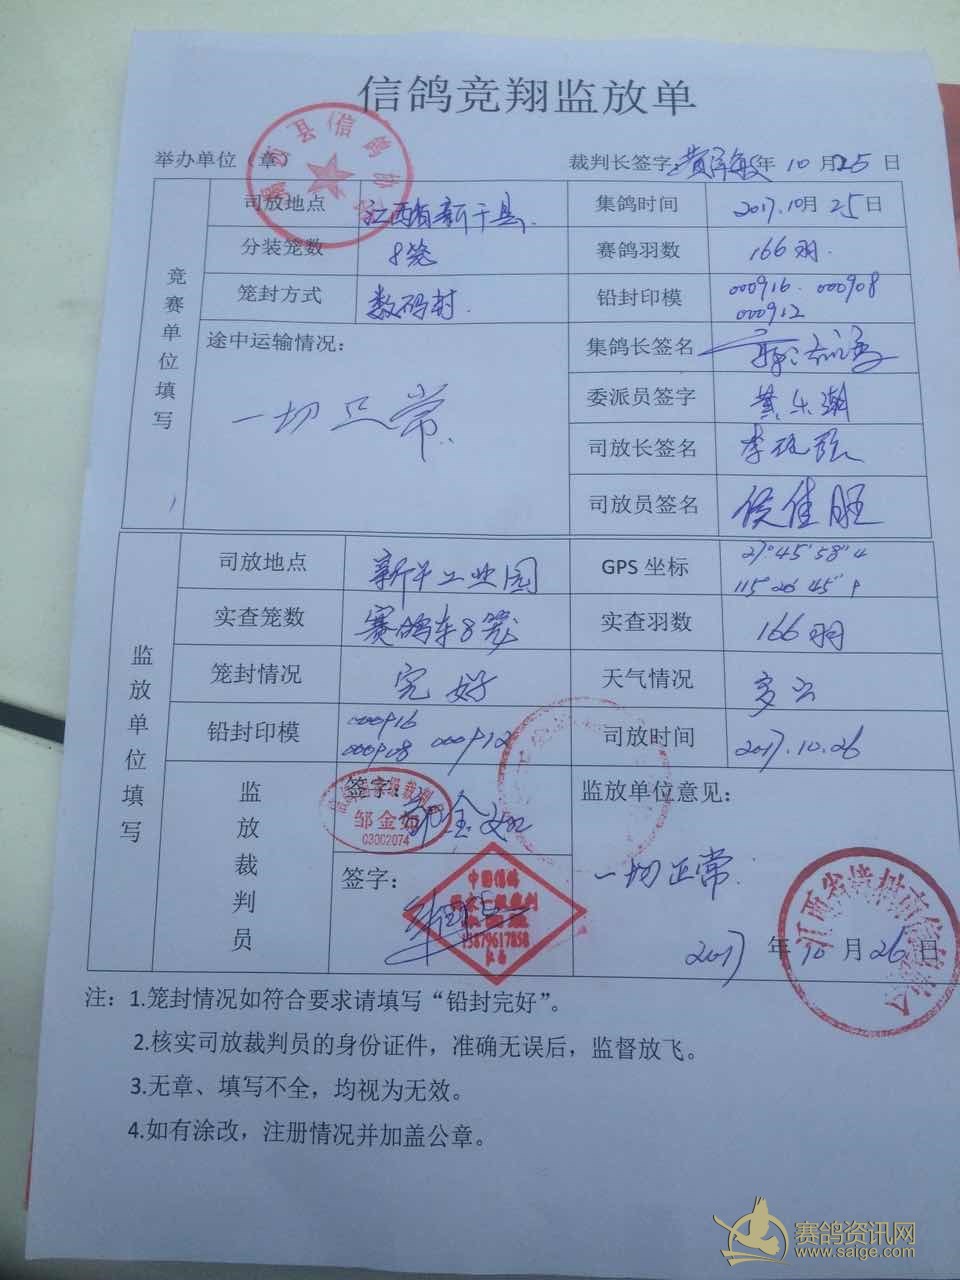 信鸽竞翔监放单
举办单位（章）
裁判长签字 年 10 月 25 日
竞赛单位填写
司放地点 江西省新干县
集鸽时间 2017.10月25日
分装笼数 8笼
赛鸽羽数 166羽.
笼封方式 数码封.
铅封印模 000916. 000908
000912
途中运输情况：
一切正常.
集鸽长签名
委派员签字
司放长签名
司放员签名 侯佳旺
监放单位填写
司放地点 新干工业园
GPS 坐标 27°45'58"4
115 26 45" 9
实查笼数 赛鸽车8笼
实查羽数 166羽
笼封情况 完好
天气情况 多云
铅封印模 000916
000908 000912
司放时间 2017.10.26
监放裁判员
签字：
邹金如
03002074
签字：
中国信鸽
13879617858
江西
监放单位意见：
一切正常.
2017 年 10 月 26 日
江西省樟树市信鸽协会
注：1.笼封情况如符合要求请填写“铅封完好”。
2.核实司放裁判员的身份证件，准确无误后，监督放飞。
3.无章、填写不全，均视为无效。
4.如有涂改，注册情况并加盖公章。
赛鸽资讯网
www.saige.com